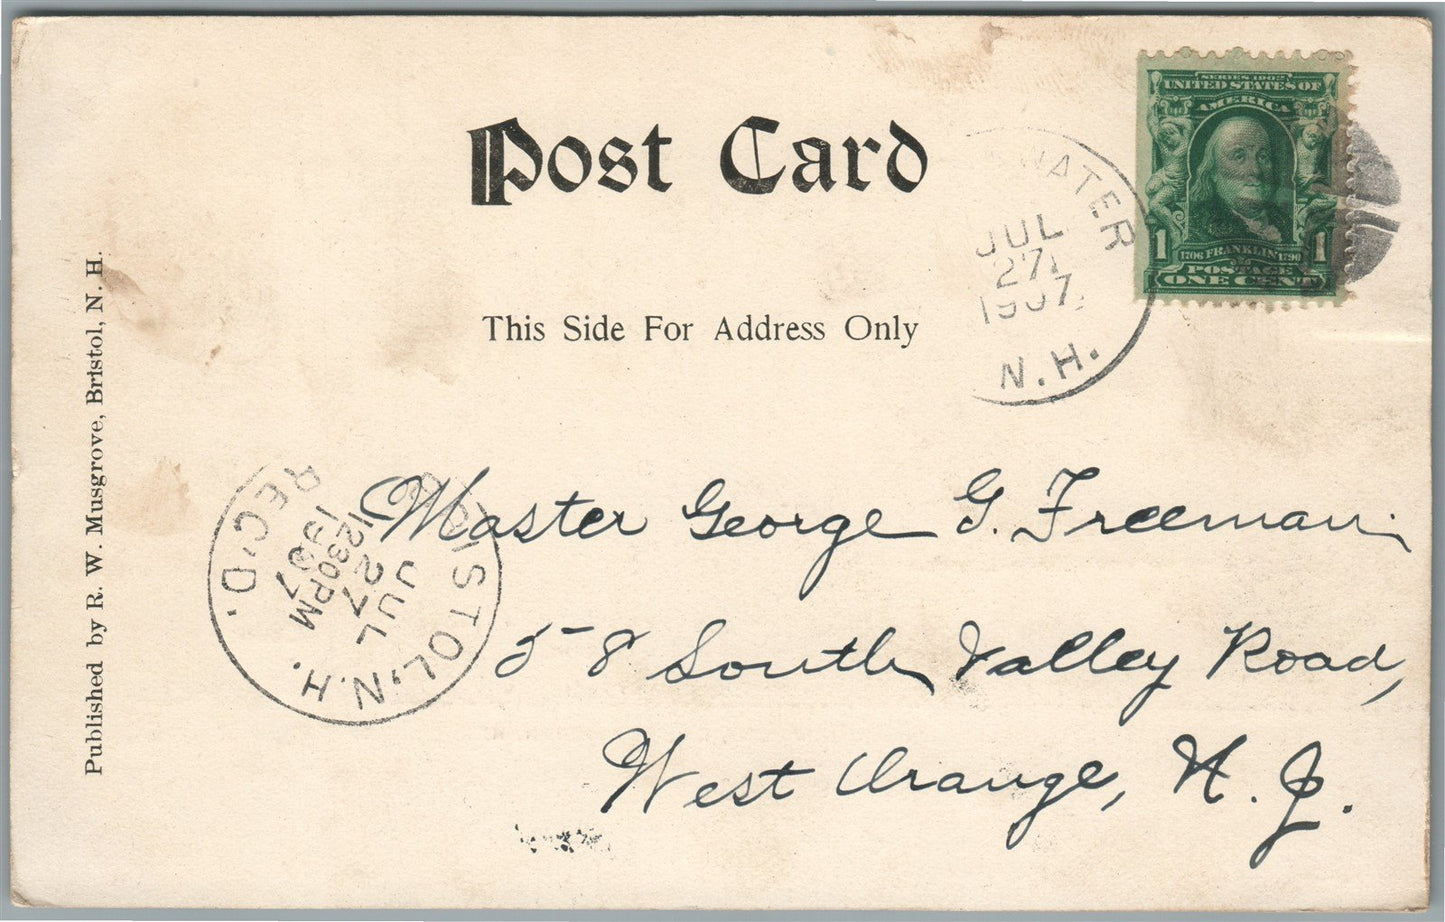 Post Card
This Side For Address Only
SERIES 1902
UNITED STATES OF
AMERICA
1706 FRANKLIN 1790
1 1
POSTAGE
ONE CENT
WATER
JUL
27
1907
N.H.
Published by R. W. Musgrove, Bristol, N. H.
BRISTOL, N.H.
JUL
27
1230PM
1907
REC'D.
Master George G. Freeman.
58 South Valley Road,
West Orange, N. J.